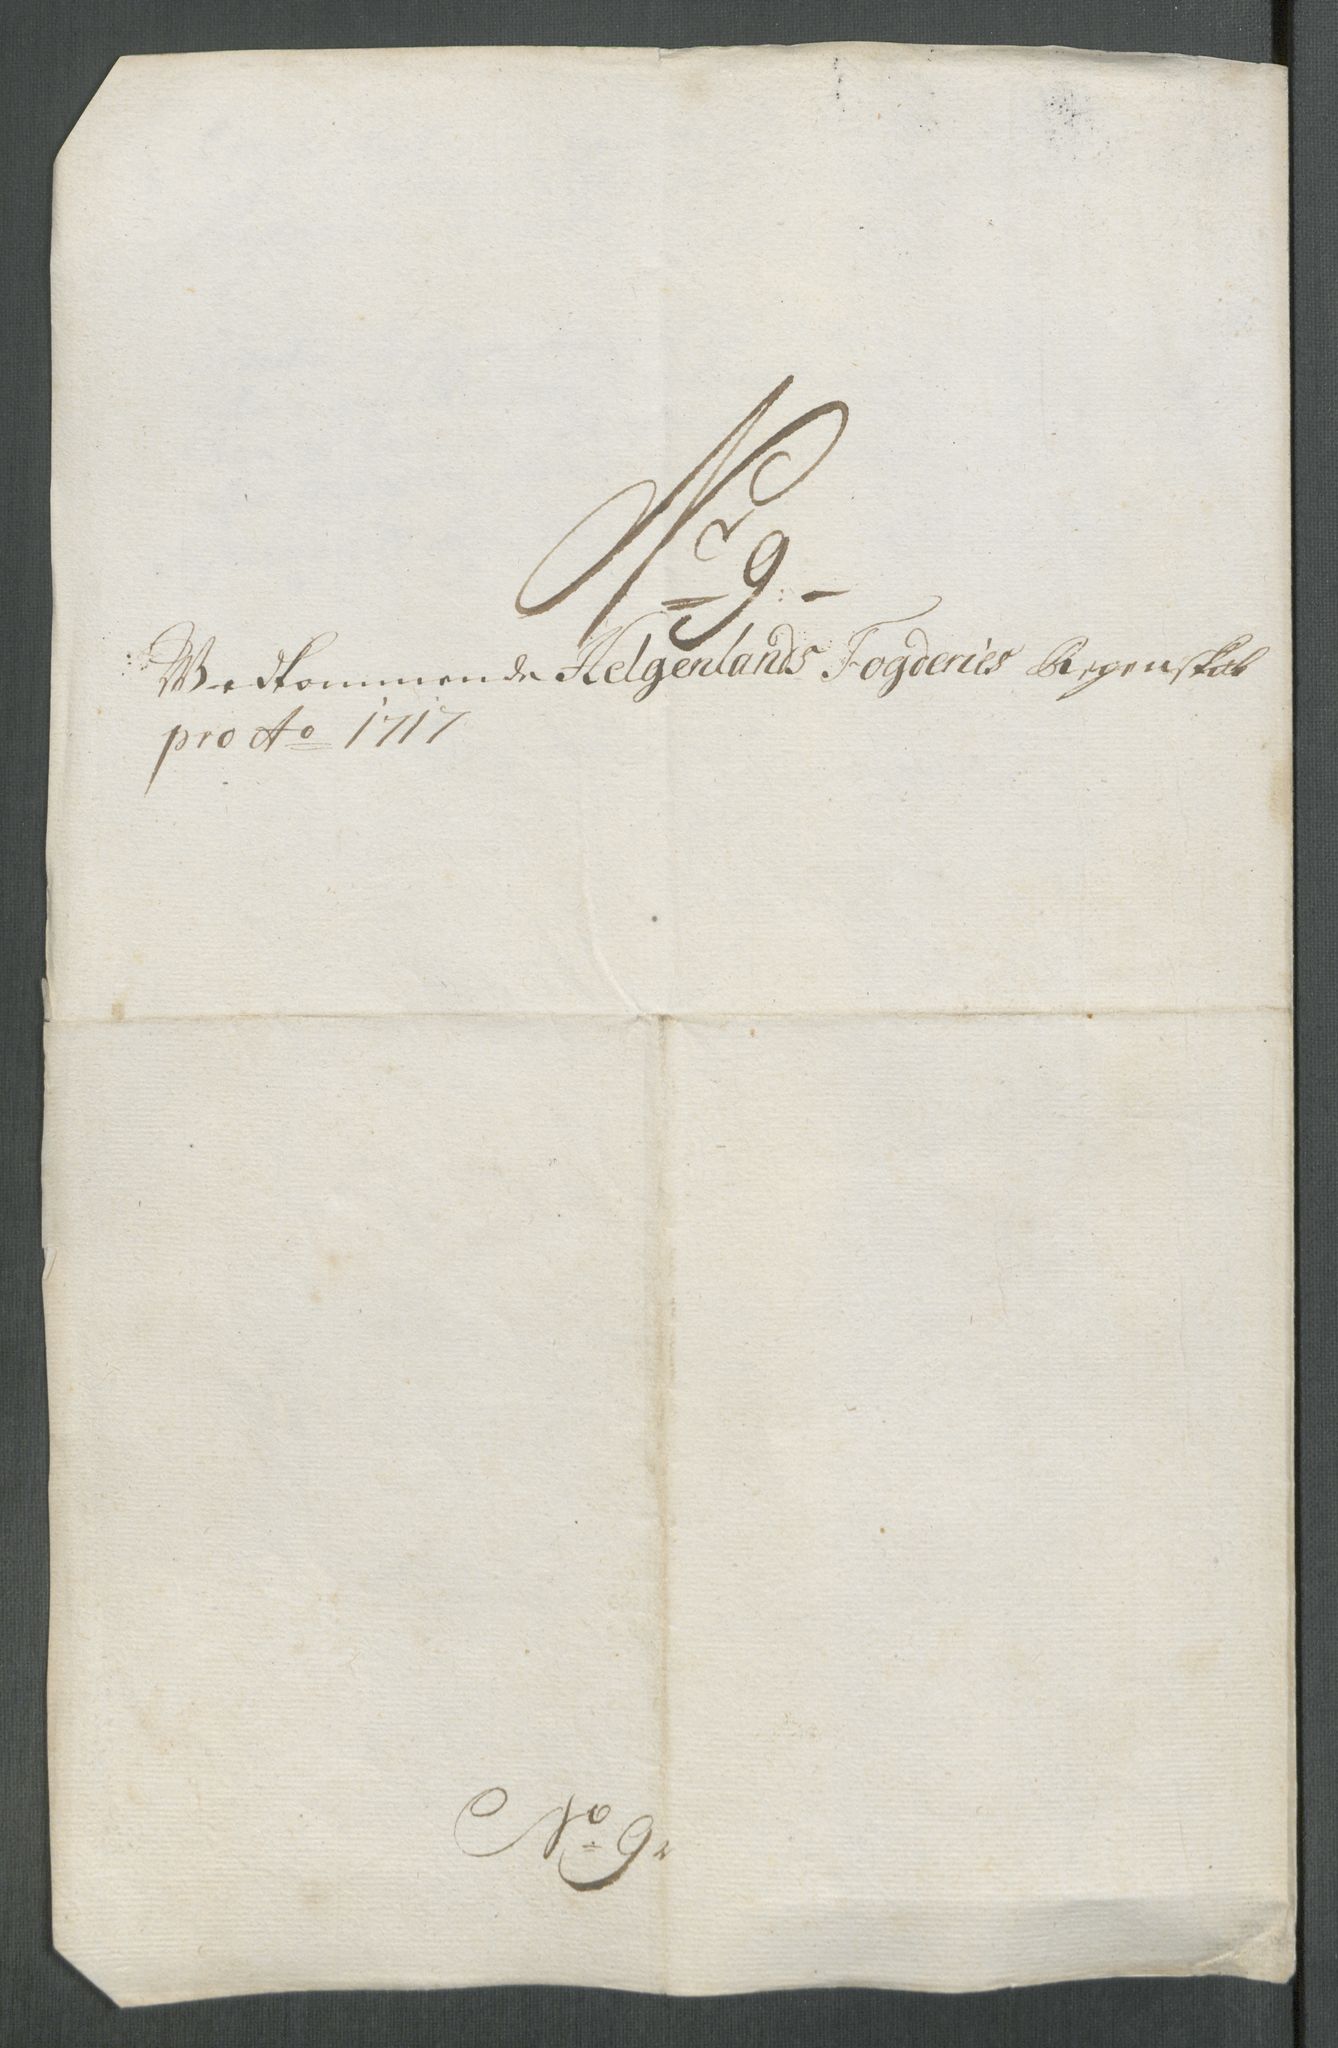 No 9
Wedkommende Helgenlands Fogderies Regenskab
pro Ao 1717
No 9